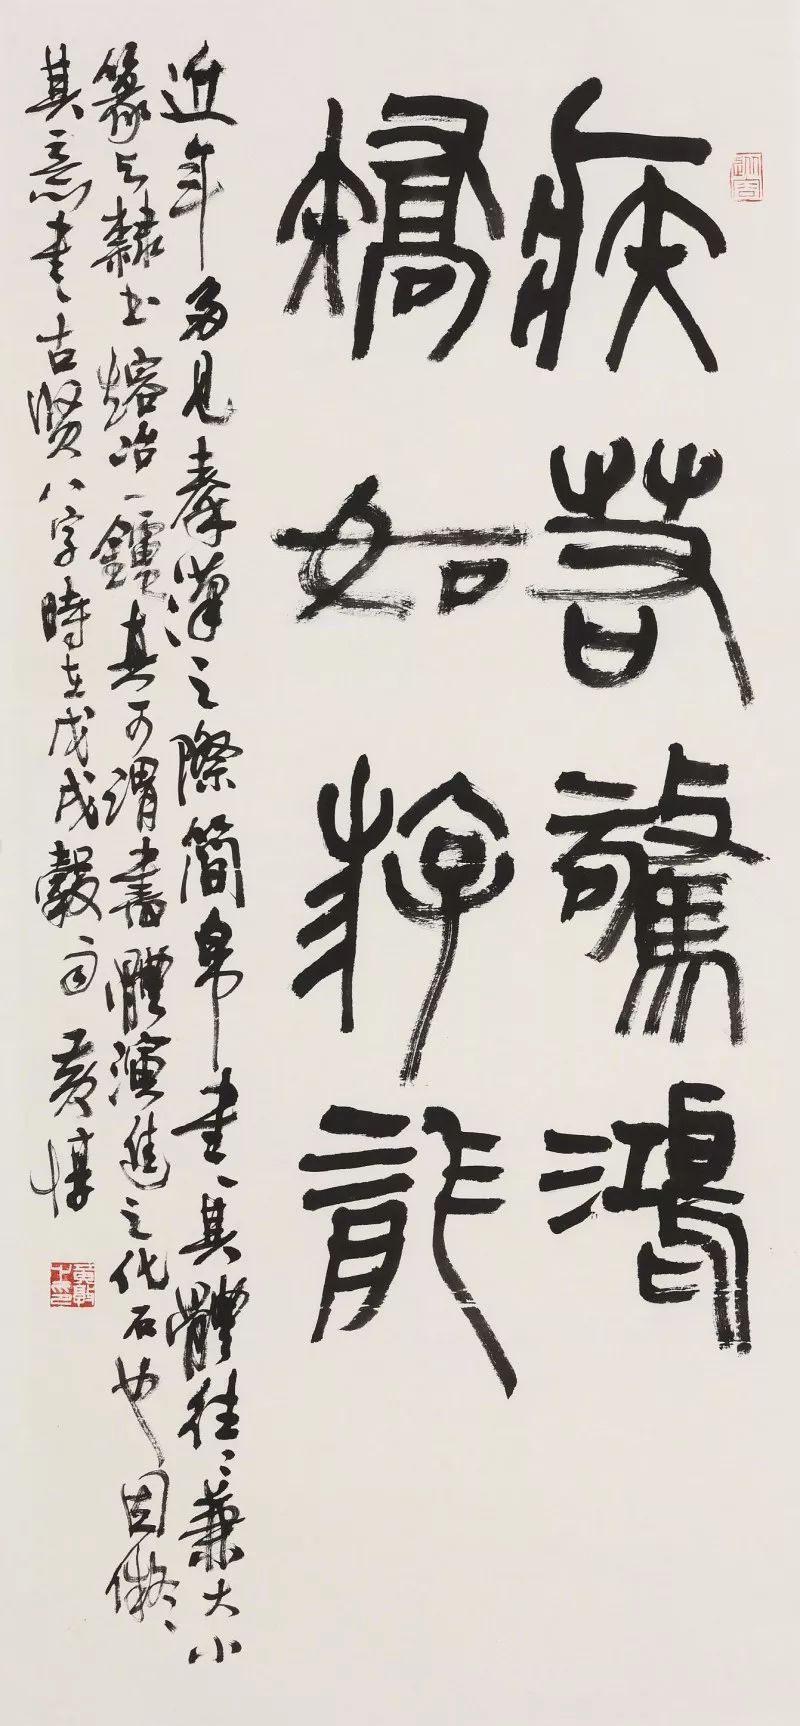 疾若驚鴻
矯如游龍
近年多見秦漢之際簡帛書書其體往往兼大小
篆與隸書熔冶一鑪真可謂書體演進之化石也因擬
其意書古賢八字時在戊戌穀雨黃惇